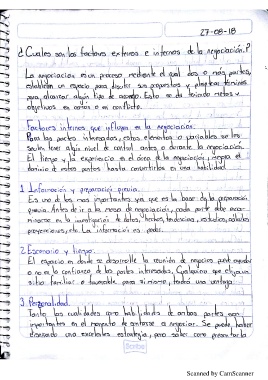 27-08-18
¿Cuáles son los factores externos e internos de la negociación?
La negociación es un proceso mediante el cual dos o más partes,
establecen un espacio para discutir sus propuestas y plantear términos
para alcanzar algún tipo de acuerdo. Esto se da teniendo metas y
objetivos en común o en conflicto.
Factores internos que influyen en la negociación:
Para las partes interesadas, estos elementos o variables se les
tiene algún nivel de control antes o durante la negociación.
El tiempo y la experiencia en el área de la negociación, mejora el
dominio de estos puntos hasta convertirlos en una habilidad.
1. Información y preparación previa.
Es uno de los más importantes, ya que es la base de la preparación
previa. Antes de ir a la mesa de negociación, cada parte debe
en la investigación de datos, tendencias, estudios,
proyecciones, etc. La información es poder.
2. Escenario y tiempo.
El espacio en donde se desarrolle la reunión de negocios, puede ayudar
o no en la confianza de las partes interesadas. Cualquiera que elija un
sitio familiar o favorable para sí mismo, tendrá una ventaja.
3. Personalidad.
Tanto las cualidades como habilidades de ambas partes son
importantes en el momento de sentarse a negociar. Se puede haber
una excelente estrategia, pero saber cómo presentarla
Scribe
Scanned by CamScanner